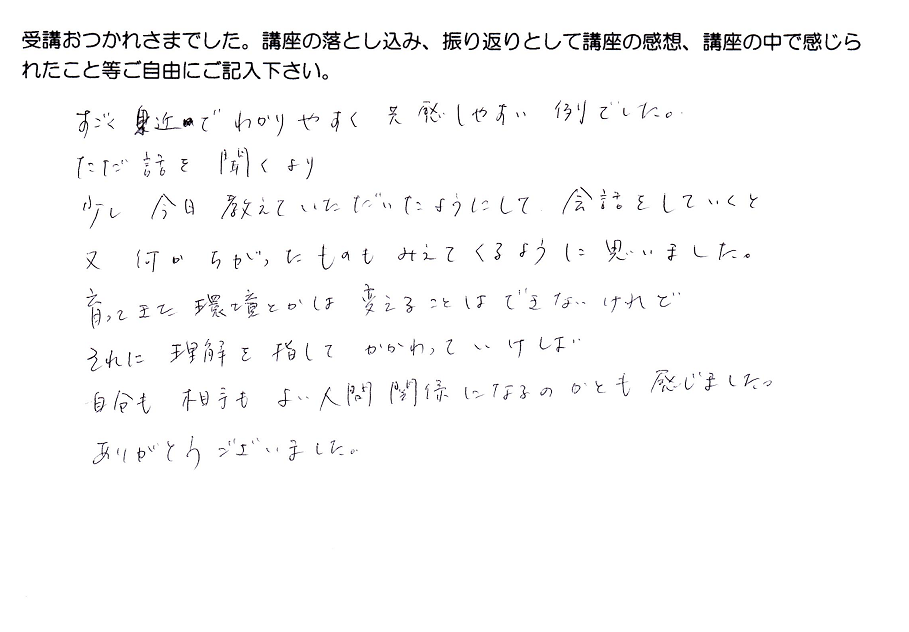 受講おつかれさまでした。講座の落とし込み、振り返りとして講座の感想、講座の中で感じら
れたこと等ご自由にご記入下さい。
すごく身近でわかりやすく共感しやすい例でした。
ただ話を聞くより
少し今日教えていただいたようにして会話をしていくと
又何かちがったものもみえてくるように思いました。
育ってきた環境とかは変えることはできないけれど
それに理解を指してかかわっていけしば
自分も相手もよい人間関係になるのかとも感じました。
ありがとうございました。